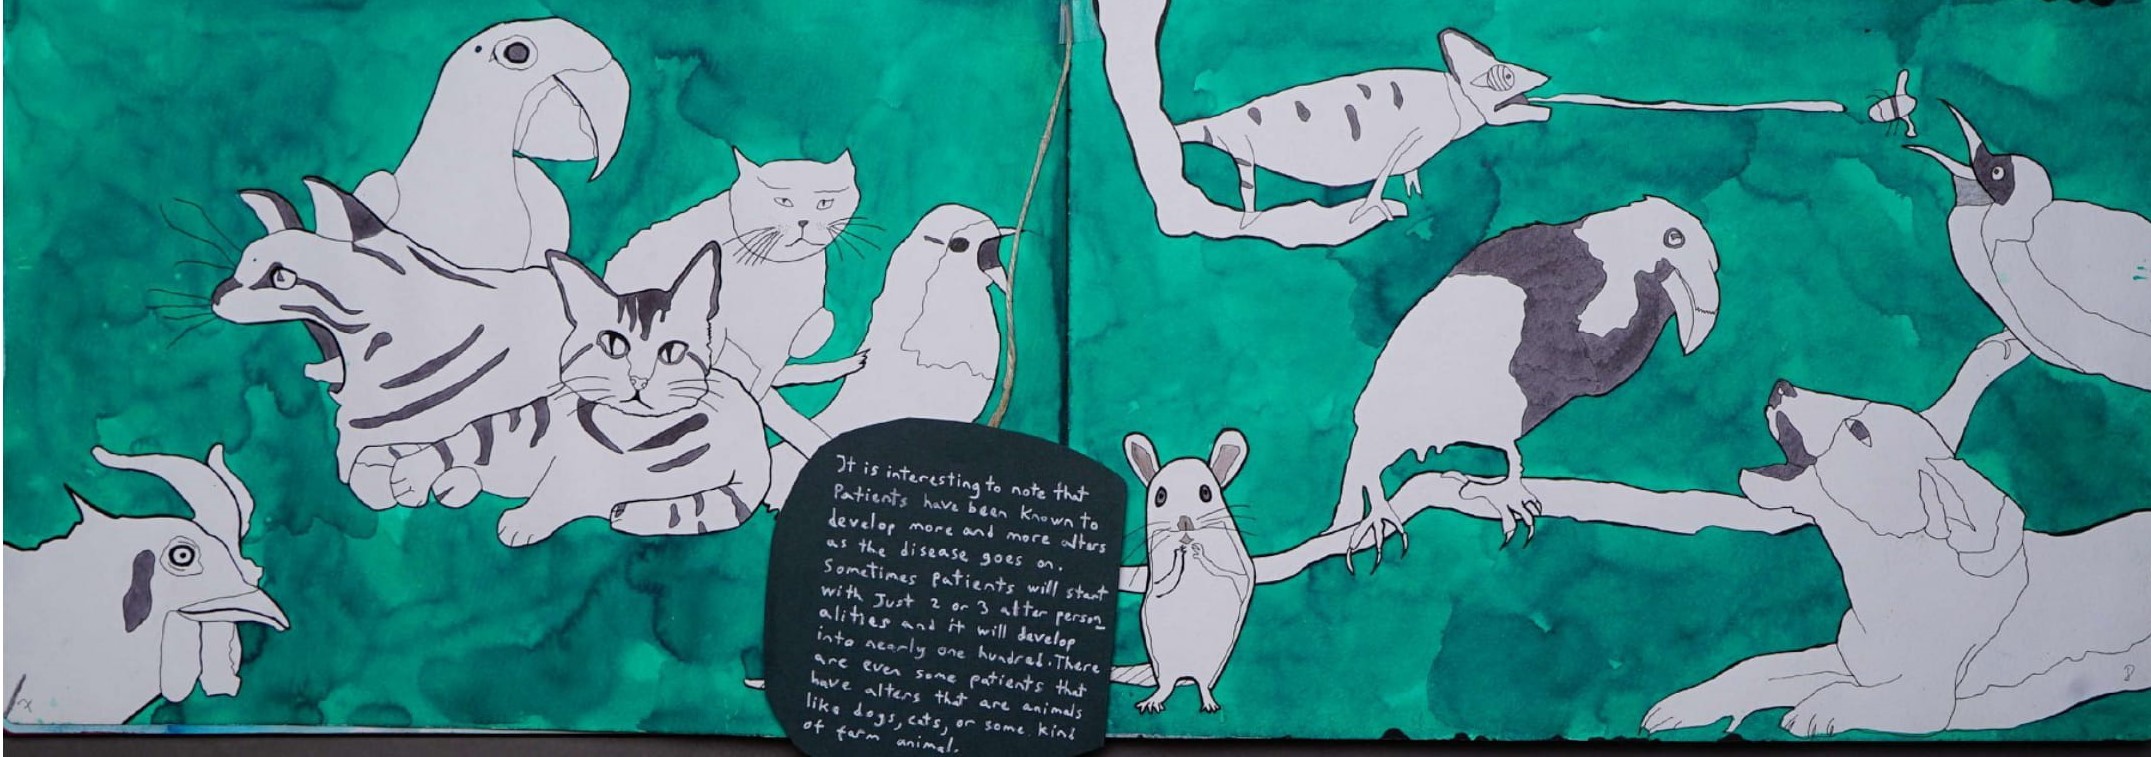 It is interesting to note that
Patients have been known to
develop more and more alters
as the disease goes on.
Sometimes patients will start
with Just 2 or 3 alter person
alities and it will develop
into nearly one hundred. There
are even some patients that
have alters that are animals
like dogs, cats, or some kind
of farm animal.